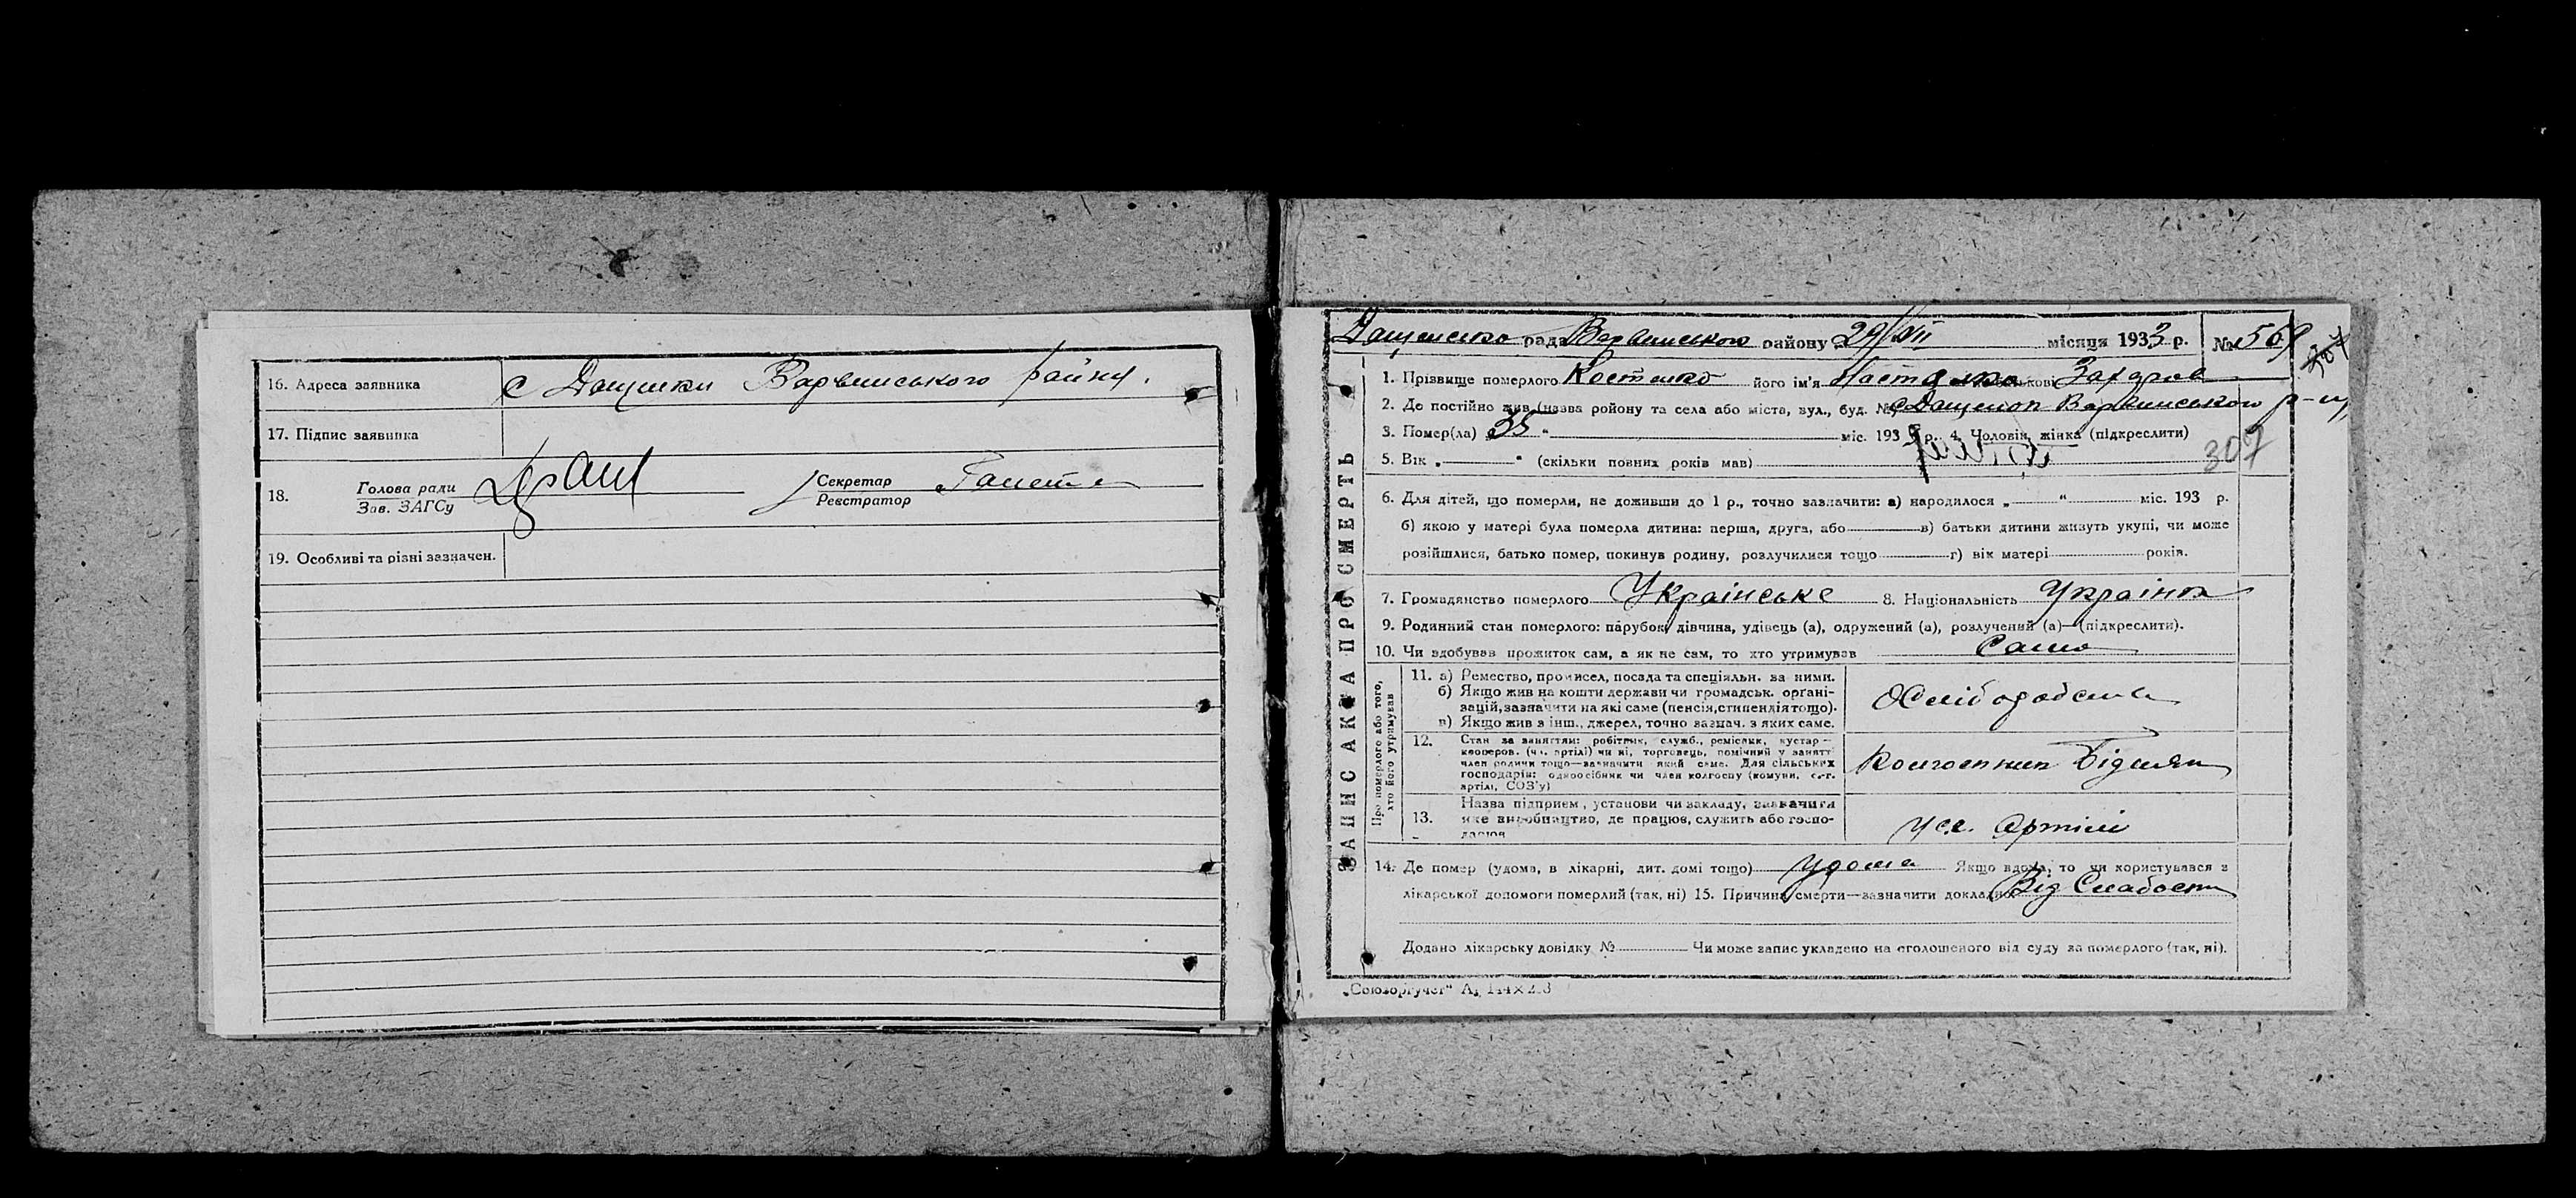 16. Адреса заявника с Дащинки Варвинського району.
17. Підпис заявника
18. Голова ради Секретар
Зав. ЗАГСу Реєстратор
19. Особливі та різні зазначен.
ЗАПИС АКТА ПРО СМЕРТЬ
рада Варвинського району 29/XII місяця 1933 р. №
1. Прізвище померлого Костенко його ім'я по батькові Захаров
2. Де постійно жив (назва району та села або міста, вул., буд. № Варвинського р-ну
3. Помер(ла) 35 міс. 193 р. 4. Чоловік, жінка (підкреслити)
5. Вік „ “ (скільки повних років мав) 307
6. Для дітей, що померли, не доживши до 1 р., точно зазначити: а) народилося „ “ міс. 193 р.
б) якою у матері була померла дитина: перша, друга, або в) батьки дитини живуть укупі, чи може
розійшлися, батько помер, покинув родину, розлучилися тощо г) вік матері років.
7. Громадянство померлого Українське 8. Національність Українка
9. Родинний стан померлого: парубок, дівчина, удівець (а), одружений (а), розлучений (а)—(підкреслити).
10. Чи здобував прожиток сам, а як не сам, то хто утримував Сама
Про померлого або того, хто його утримував
11. а) Ремество, промисел, посада та спеціальн. за ними.
б) Якщо жив на кошти держави чи громадськ. органі-
зацій, зазначити на які саме (пенсія, стипендія тощо).
в) Якщо жив з інш., джерел, точно зазнач. з яких саме.
12. Стан за заняттям: робітник, служб., ремісник, кустар—
кооперов. (чл. артілі) чи ні, торговець, помічний у занятт
член родини тощо—зазначити який саме. Для сільських
господарів: одноосібник чи член колгоспу (комуни, с.-г.
артілі, СОЗ'у)
Колгоспник Бідняк
13. Назва підприєм., установи чи закладу, зазначити
яке виробництво, де працює, служить або госпо-
дарює
Артілі
14. Де помер (удома, в лікарні, дит. домі тощо) удома Якщо вдома, то чи користувався з
лікарської допомоги померлий (так, ні) 15. Причина смерти—зазначити докладно Від Слабости
Додано лікарську довідку № Чи може запис укладено на оголошеного від суду за померлого (так, ні).
„Союзоргучет“